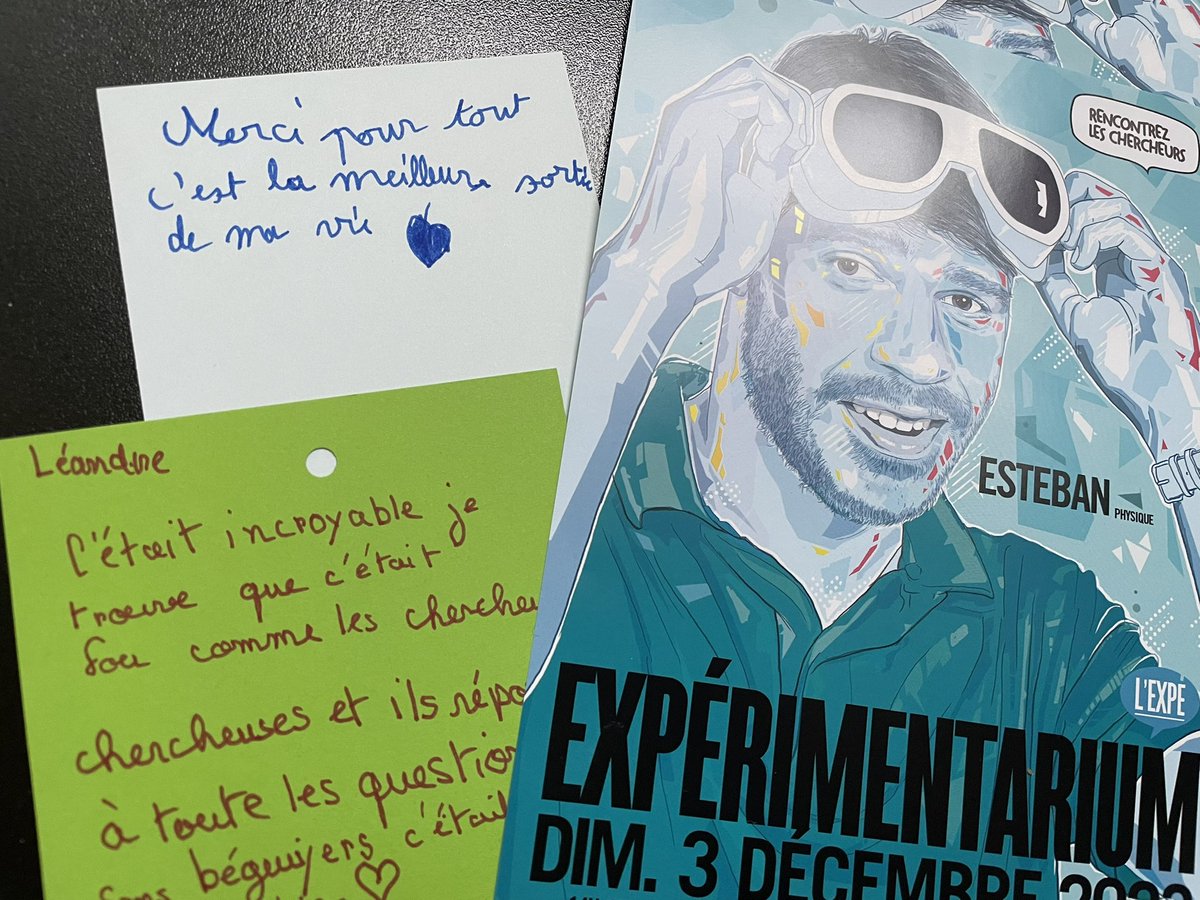 Merci pour tout
c'est la meilleure sortie
de ma vie
Léandre
C'était incroyable je
trouve que c'était
fou comme les chercheu
chercheuses et ils répo
à toute les question
béguiyers c'était
RENCONTREZ
LES CHERCHEURS
ESTEBAN
PHYSIQUE
L'EXPE
EXPÉRIMENTARIUM
DIM. 3 DÉCEMBRE